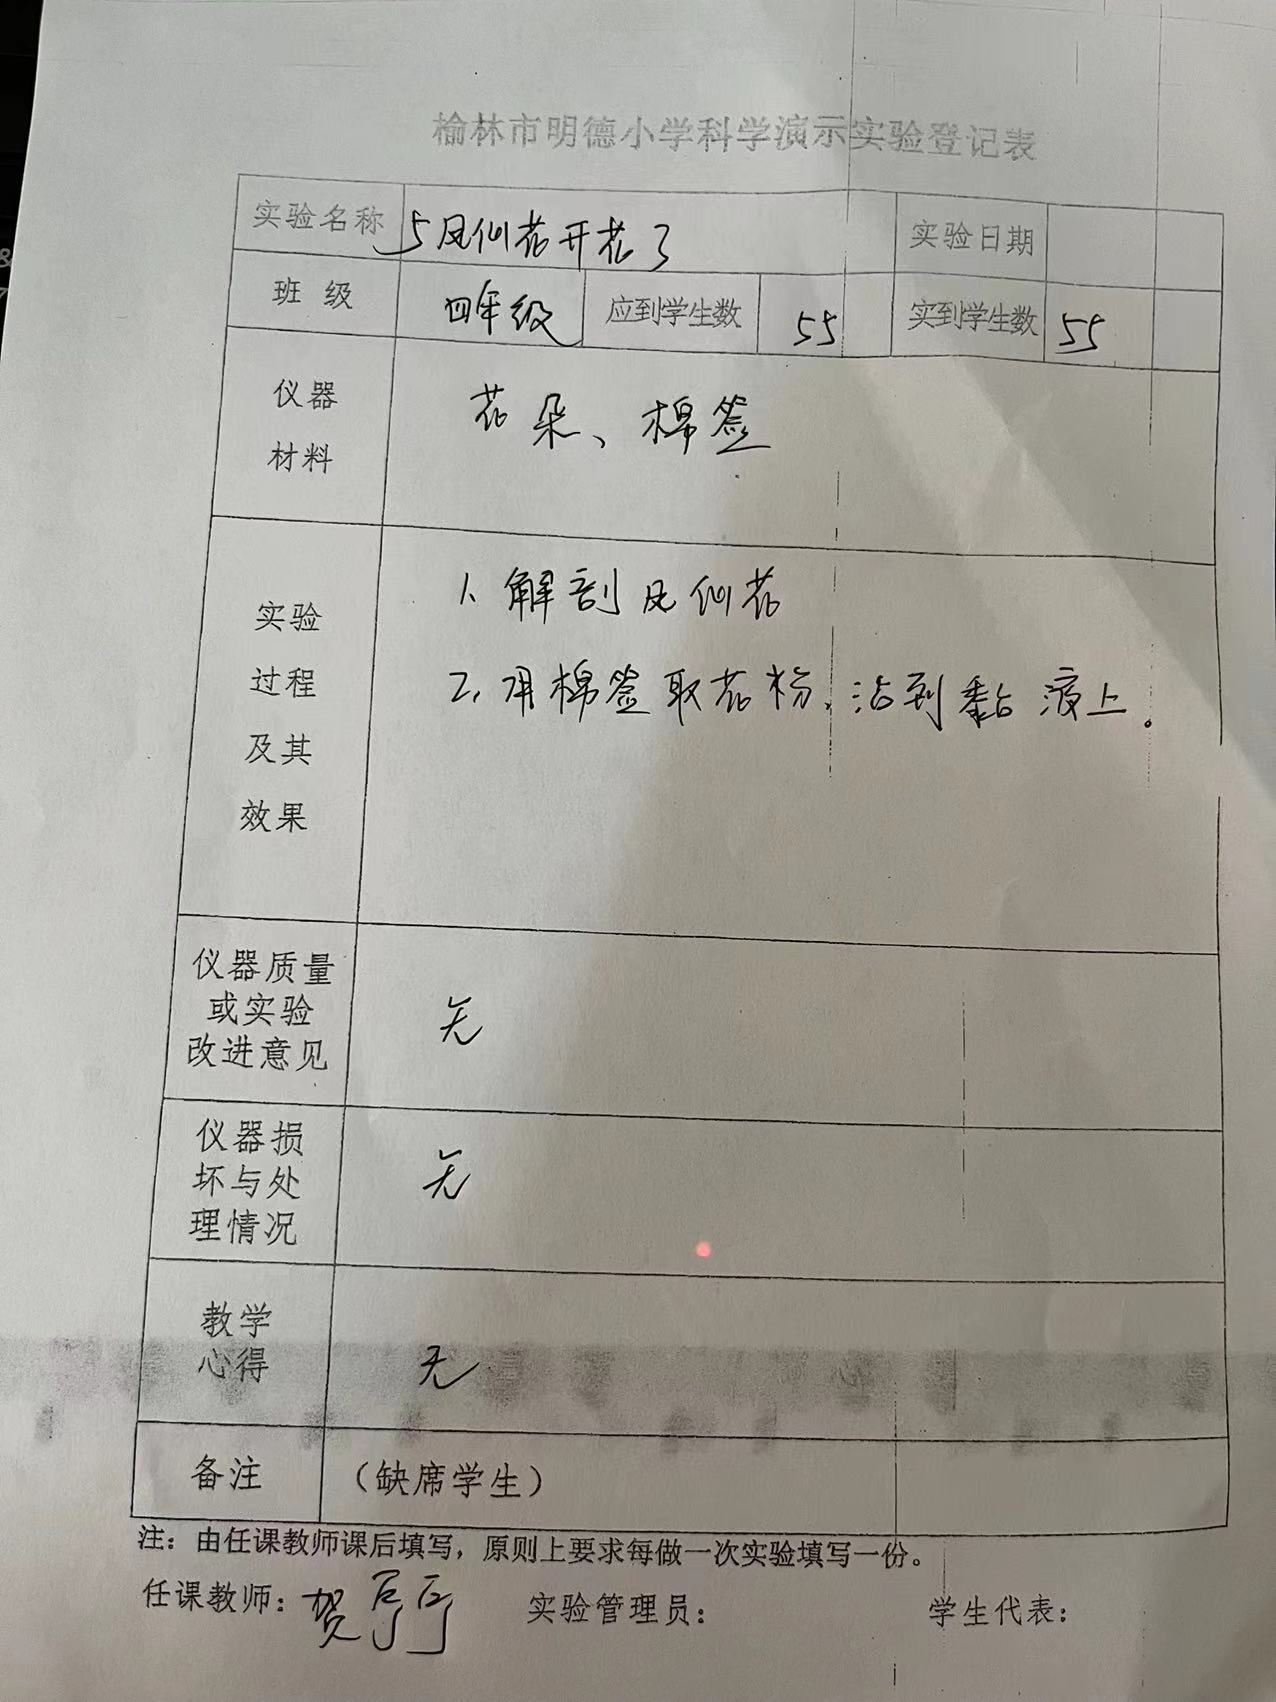 榆林市明德小学科学演示实验登记表
实验名称 5凤仙花开花了 实验日期
班 级 四年级 应到学生数 55 实到学生数 55
仪器
材料
花朵、棉签
实验
过程
及其
效果
1、解剖凤仙花
2、用棉签取花粉,沾到黏液上。
仪器质量
或实验
改进意见
无
仪器损
坏与处
理情况
无
教学
心得
无
备注 (缺席学生)
注:由任课教师课后填写,原则上要求每做一次实验填写一份。
任课教师:贺 实验管理员: 学生代表: